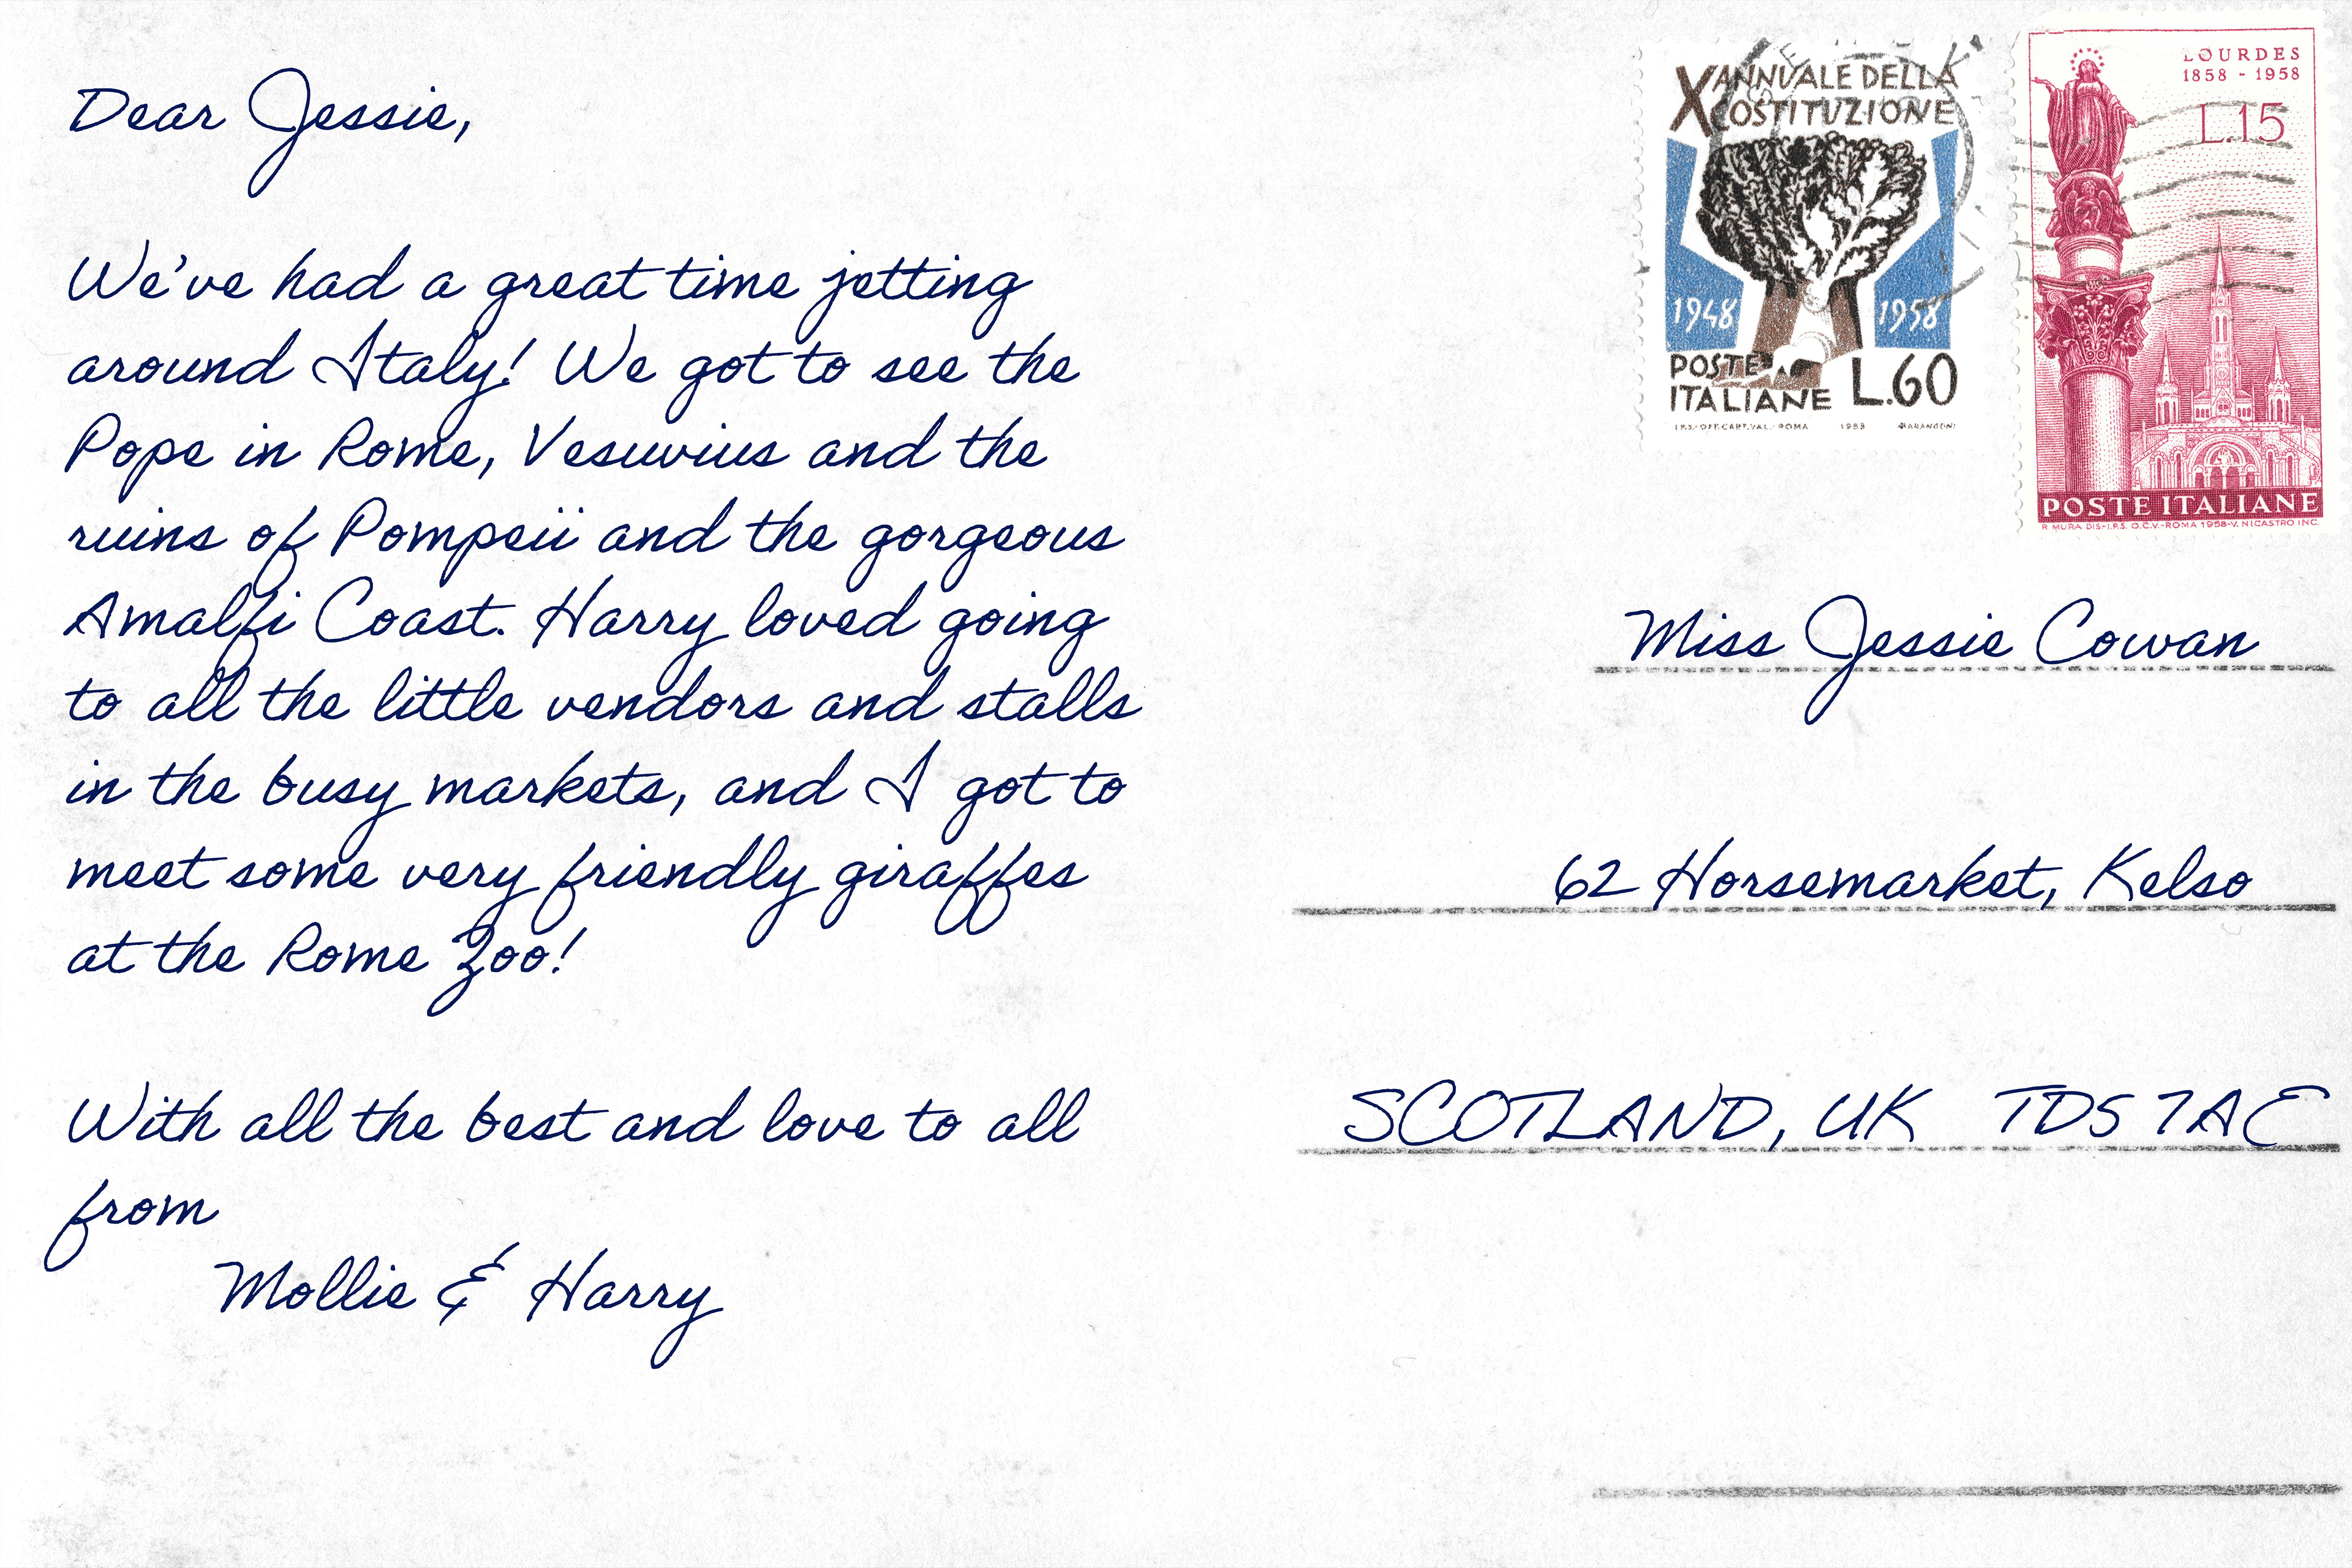 Dear Jessie,
We've had a great time jetting
around Italy! We got to see the
Pope in Rome, Vesuvius and the
ruins of Pompeii and the gorgeous
Amalfi Coast. Harry loved going
to all the little vendors and stalls
in the busy markets, and I got to
meet some very friendly giraffes
at the Rome Zoo!
With all the best and love to all
from
Mollie & Harry
X ANNUALE DELLA
COSTITUZIONE
1948 1958
POSTE
ITALIANE L.60
I.P.S.-OFF.CART.VAL.-ROMA 1958 MARANGONI
LOURDES
1858 - 1958
L.15
POSTE ITALIANE
R MURA DIS-I.P.S. O.C.V.-ROMA 1958-V. NICASTRO INC.
Miss Jessie Cowan
62 Horsemarket, Kelso
SCOTLAND, UK TD5 7AE